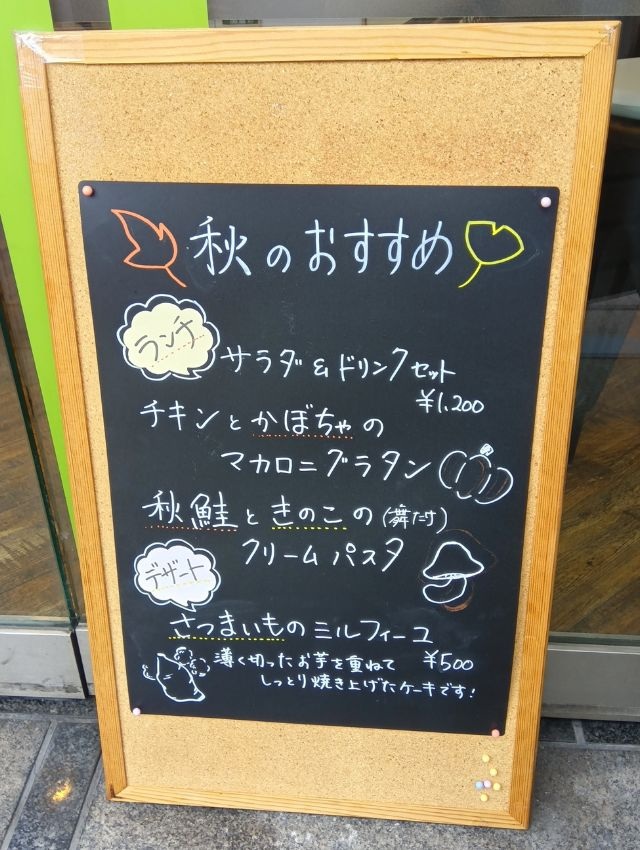 秋のおすすめ
ランチ
サラダ&ドリンクセット
¥1,200
チキンとかぼちゃの
マカロニグラタン
秋鮭ときのこの(舞たけ)
クリームパスタ
デザート
さつまいものミルフィーユ
薄く切ったお芋を重ねて ¥500
しっとり焼き上げたケーキです!